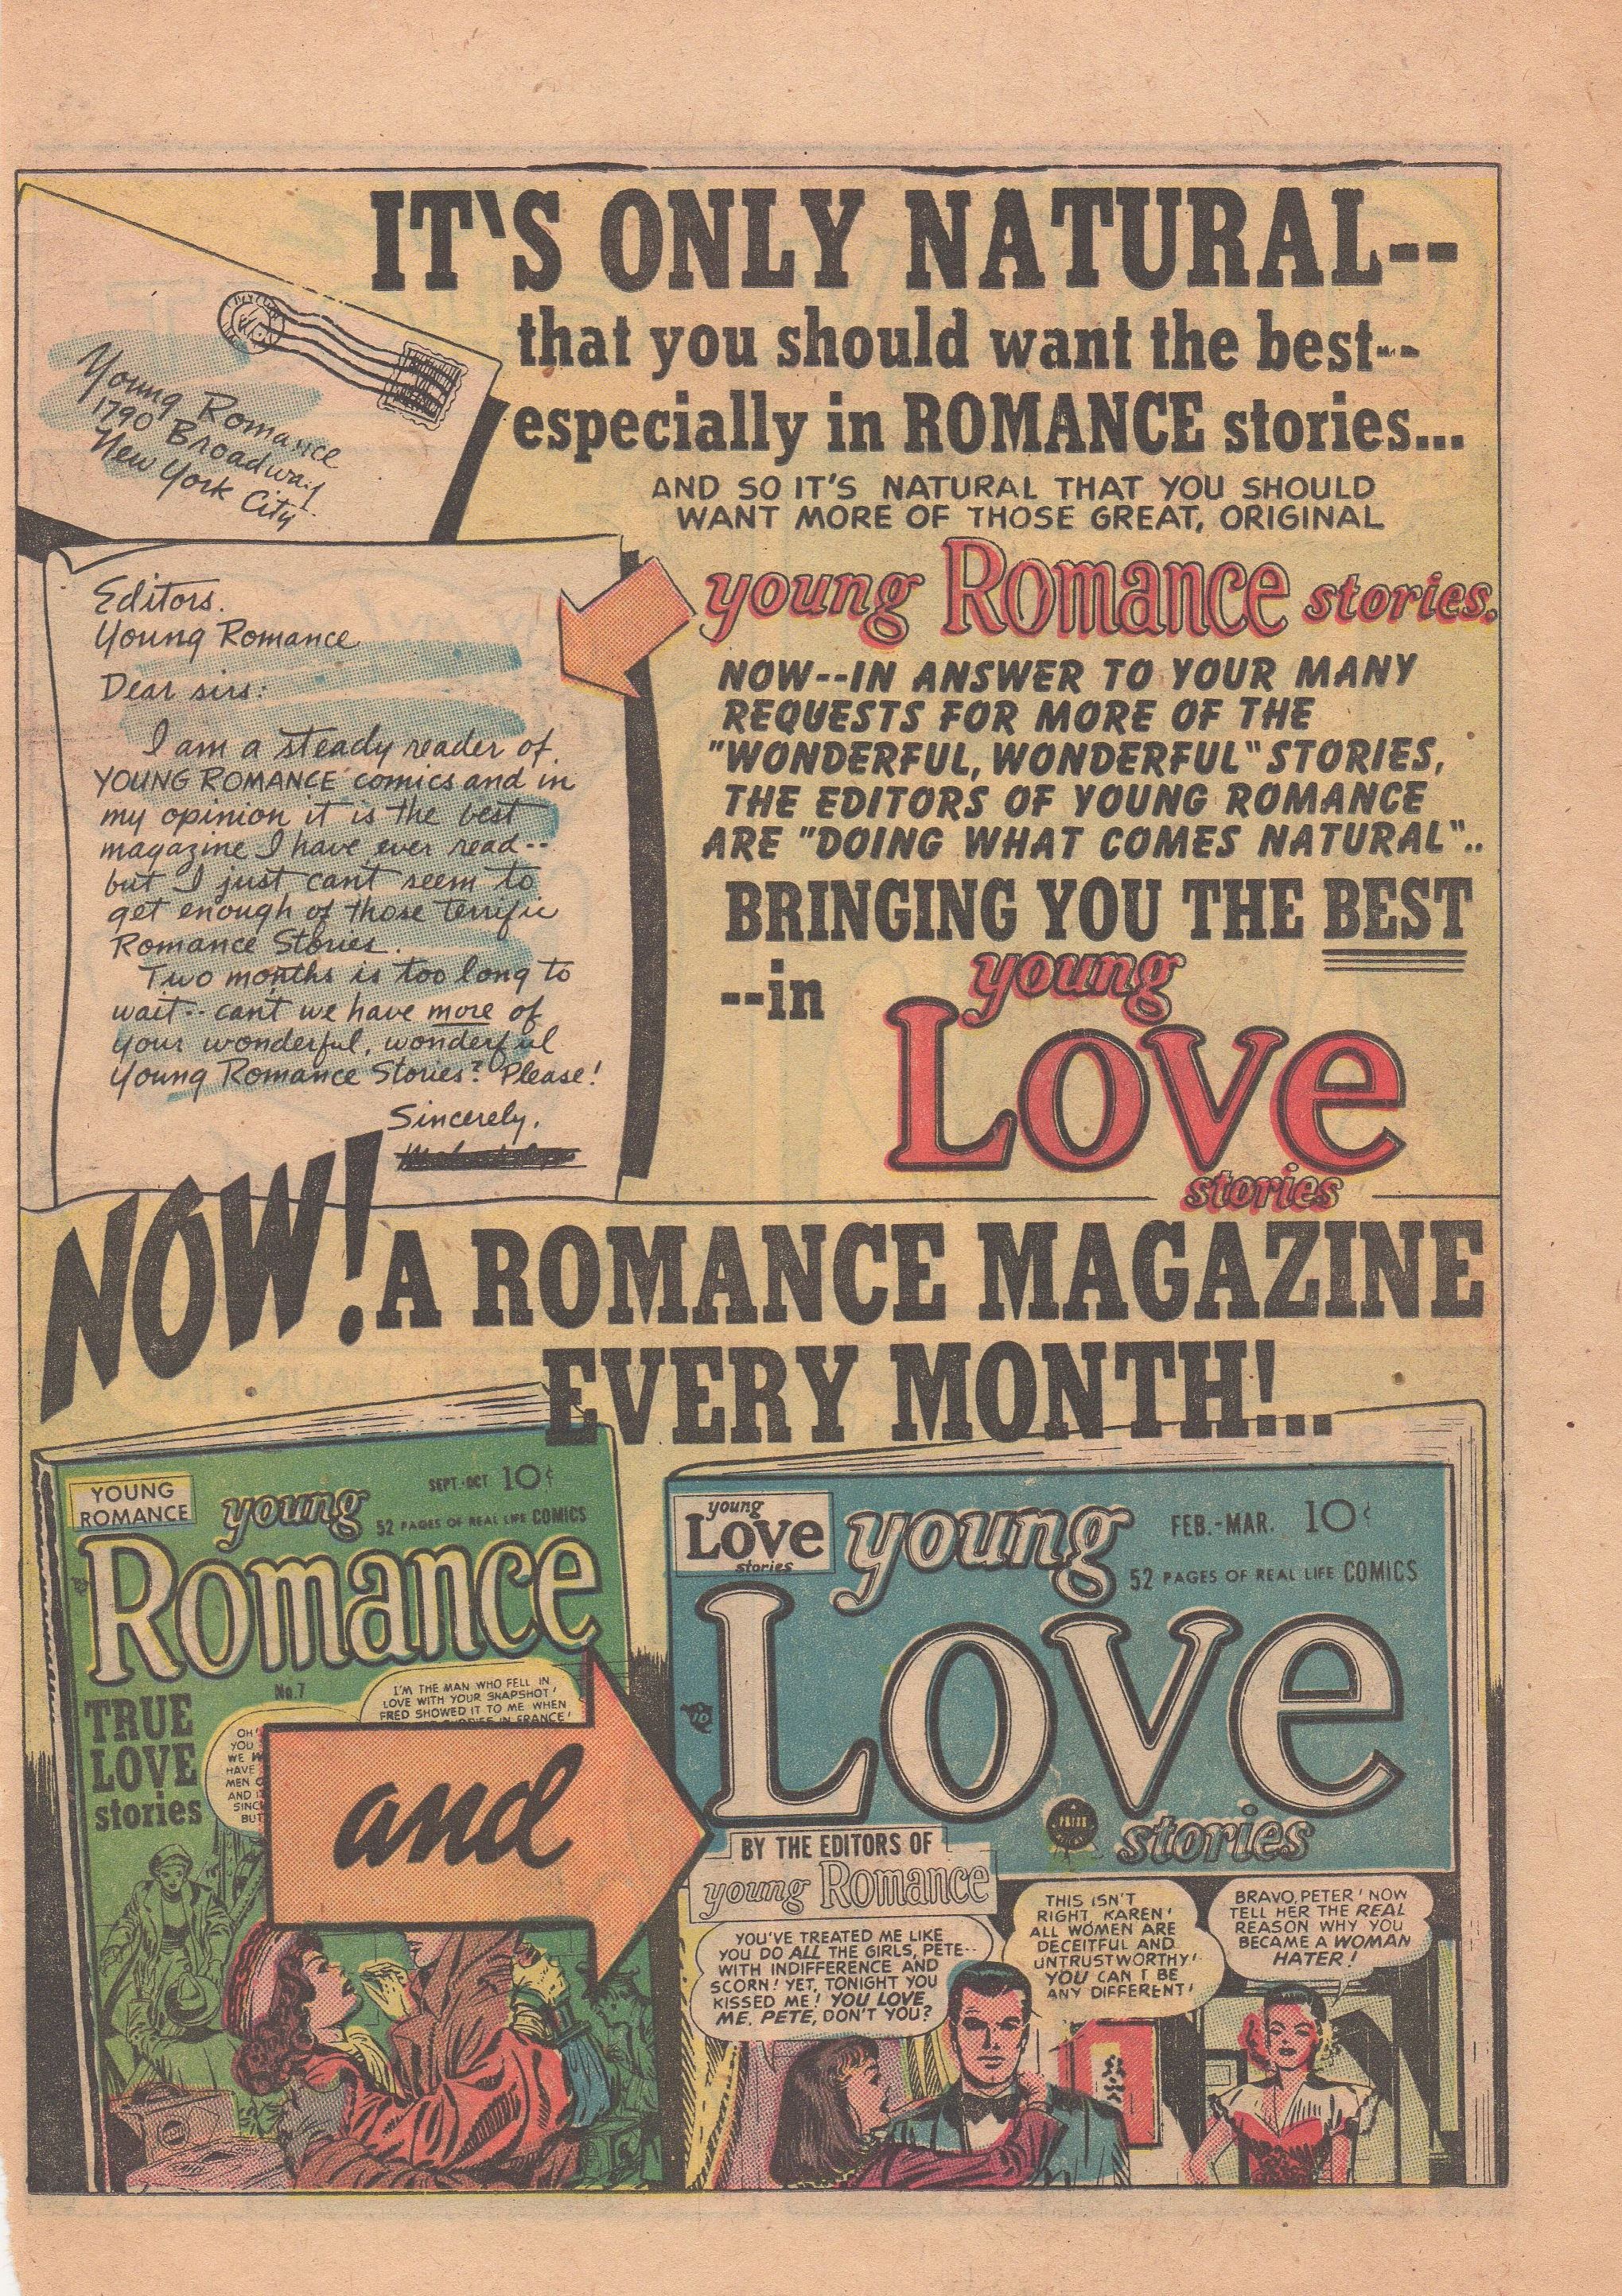 IT'S ONLY NATURAL--
that you should want the best--
especially in ROMANCE stories...
AND SO IT'S NATURAL THAT YOU SHOULD
WANT MORE OF THOSE GREAT, ORIGINAL
young Romance stories.
Young Romance
1790 Broadway
New York City
Editors.
Young Romance
Dear sirs:
I am a steady reader of
YOUNG ROMANCE comics and in
my opinion it is the best
magazine I have ever read--
but I just cant seem to
get enough of those terrific
Romance Stories.
Two months is too long to
wait-- cant we have more of
your wonderful, wonderful
Young Romance Stories? Please!
Sincerely,
NOW--IN ANSWER TO YOUR MANY
REQUESTS FOR MORE OF THE
"WONDERFUL, WONDERFUL" STORIES,
THE EDITORS OF YOUNG ROMANCE
ARE "DOING WHAT COMES NATURAL"..
BRINGING YOU THE BEST
--in young
Love
stories
NOW! A ROMANCE MAGAZINE
EVERY MONTH!..
YOUNG
ROMANCE
young
SEPT.-OCT 10¢
52 PAGES OF REAL LIFE COMICS
Romance
No.7
TRUE
LOVE
stories
I'M THE MAN WHO FELL IN
LOVE WITH YOUR SNAPSHOT!
FRED SHOWED IT TO ME WHEN
IN FRANCE!
OH!
YOU
WE
HAVE
MEN
AND
SINC
BUT
and
young
Love
stories
young
FEB.-MAR. 10¢
52 PAGES OF REAL LIFE COMICS
Love
A
PRIZE
stories
BY THE EDITORS OF
young Romance
YOU'VE TREATED ME LIKE
YOU DO ALL THE GIRLS, PETE--
WITH INDIFFERENCE AND
SCORN! YET, TONIGHT YOU
KISSED ME! YOU LOVE
ME, PETE, DON'T YOU?
THIS ISN'T
RIGHT, KAREN!
ALL WOMEN ARE
DECEITFUL AND
UNTRUSTWORTHY!
YOU CAN'T BE
ANY DIFFERENT!
BRAVO, PETER! NOW
TELL HER THE REAL
REASON WHY YOU
BECAME A WOMAN
HATER!